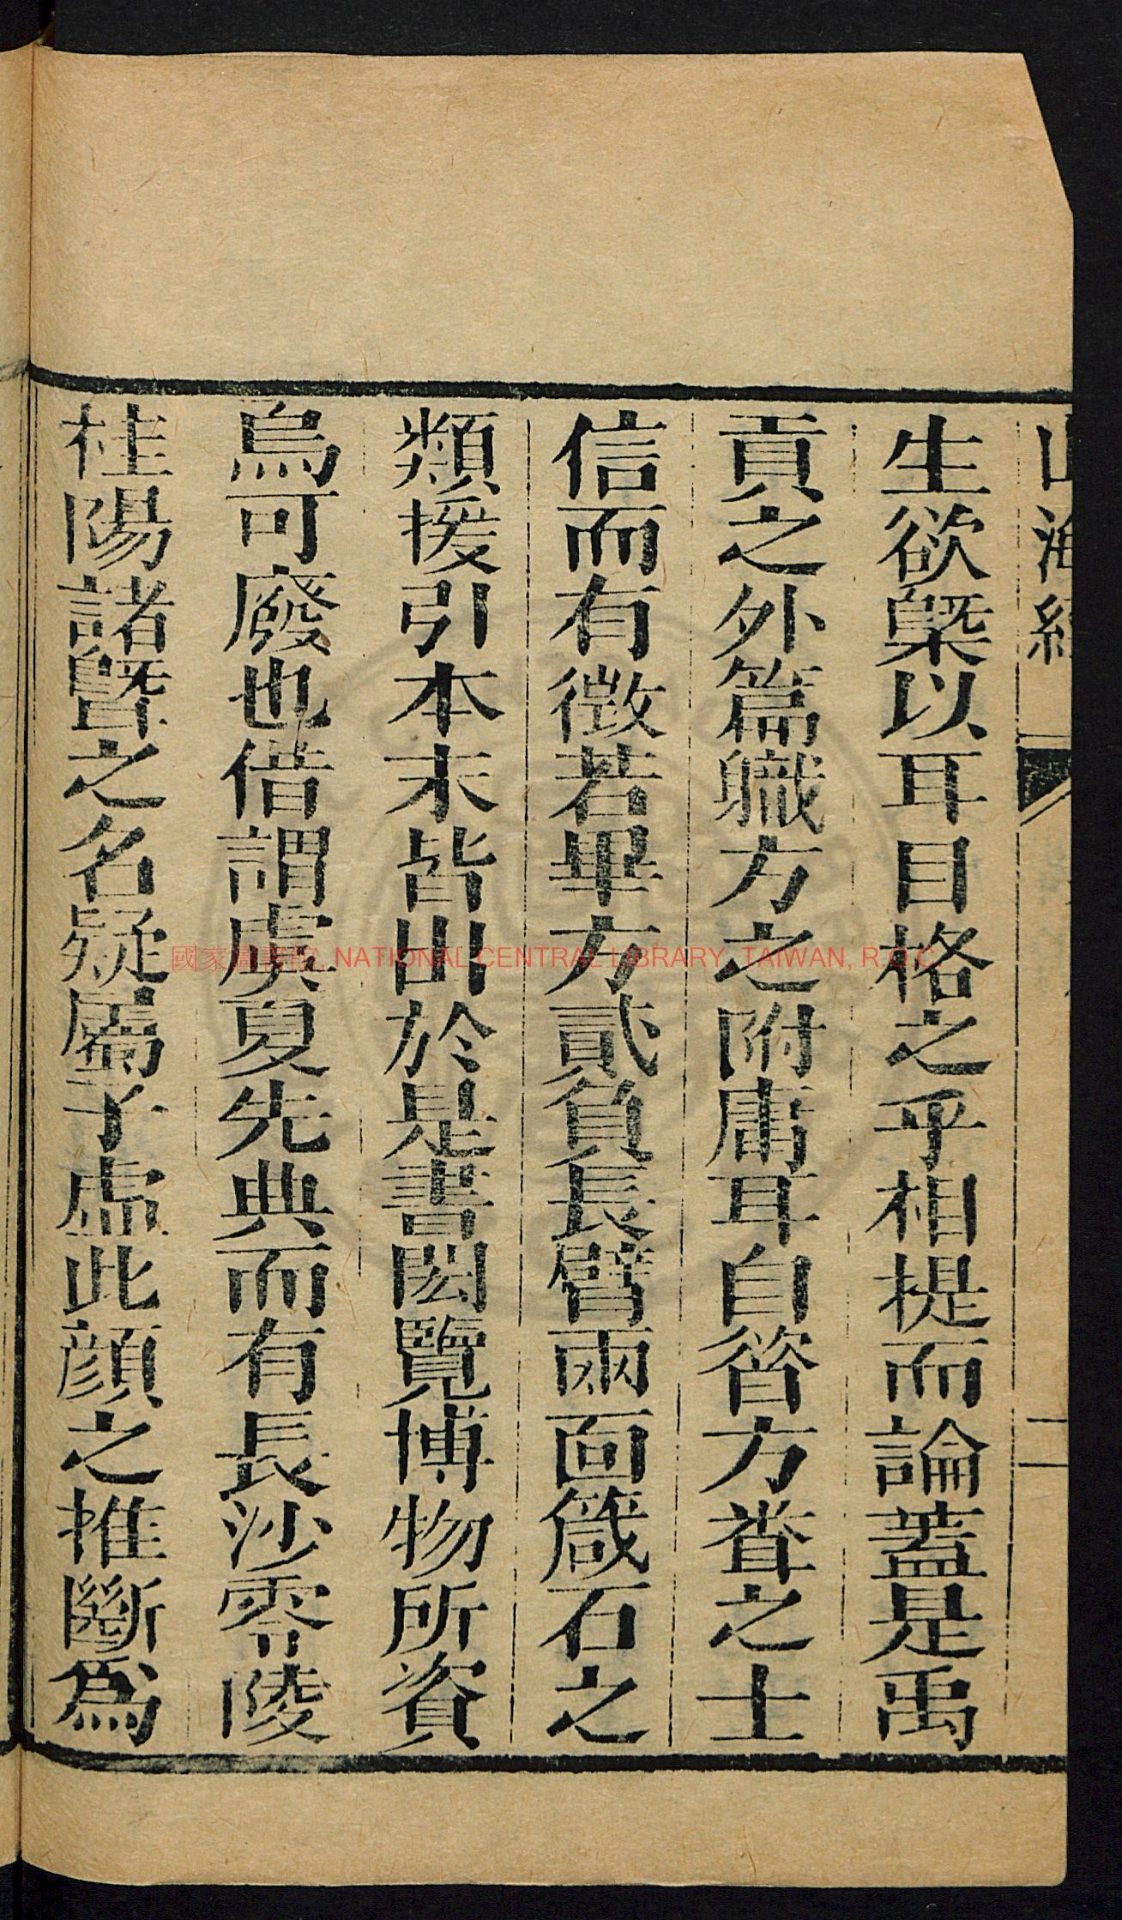 山海經
二
生欲槩以耳目格之乎相提而論蓋是禹
貢之外篇職方之附庸耳自眢方耸之士
信而有徵若畢方貳負長臂兩面箴石之
類援引本末皆出於是書閎覽博物所資
烏可廢也借謂虞夏先典而有長沙零陵
桂陽諸暨之名疑屬子虛此顏之推斷爲
NATIONAL CENTRAL LIBRARY, TAIWAN, R.O.C.